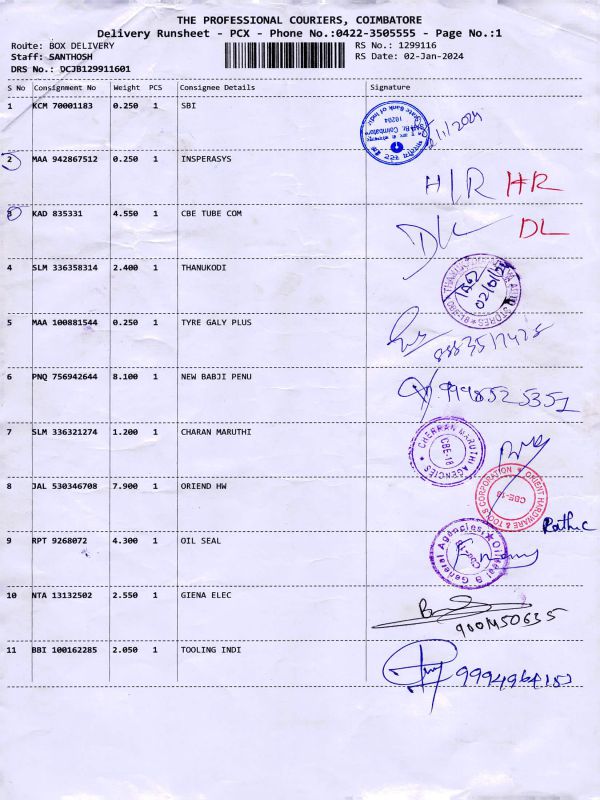 THE PROFESSIONAL COURIERS, COIMBATORE
Delivery Runsheet - PCX - Phone No.:0422-3505555 - Page No.:1
Route: BOX DELIVERY
RS No.: 1299116
Staff: SANTHOSH
RS Date: 02-Jan-2024
DRS No.: DCJB129911601
S No Consignment No Weight PCS Consignee Details Signature
1 KCM 70001183 0.250 1 SBI
2/1/2024
2 MAA 942867512 0.250 1 INSPERASYS
H/R HR
3 KAD 835331 4.550 1 CBE TUBE COM
DL DL
4 SLM 336358314 2.400 1 THANUKODI
02/01/24
5 MAA 100881544 0.250 1 TYRE GALY PLUS
6 PNQ 756942644 8.100 1 NEW BABJI PENU
7 SLM 336321274 1.200 1 CHARAN MARUTHI
CHERRAN MARUTHI AGENCIES
CBE-18
8 JAL 530346708 7.900 1 ORIEND HW
ORIENT HARDWARE & TOOLS CORPORATION
CBE-18
9 RPT 9268072 4.300 1 OIL SEAL
Oil Seal & General Agencies
10 NTA 13132502 2.550 1 GIENA ELEC
11 BBI 100162285 2.050 1 TOOLING INDI